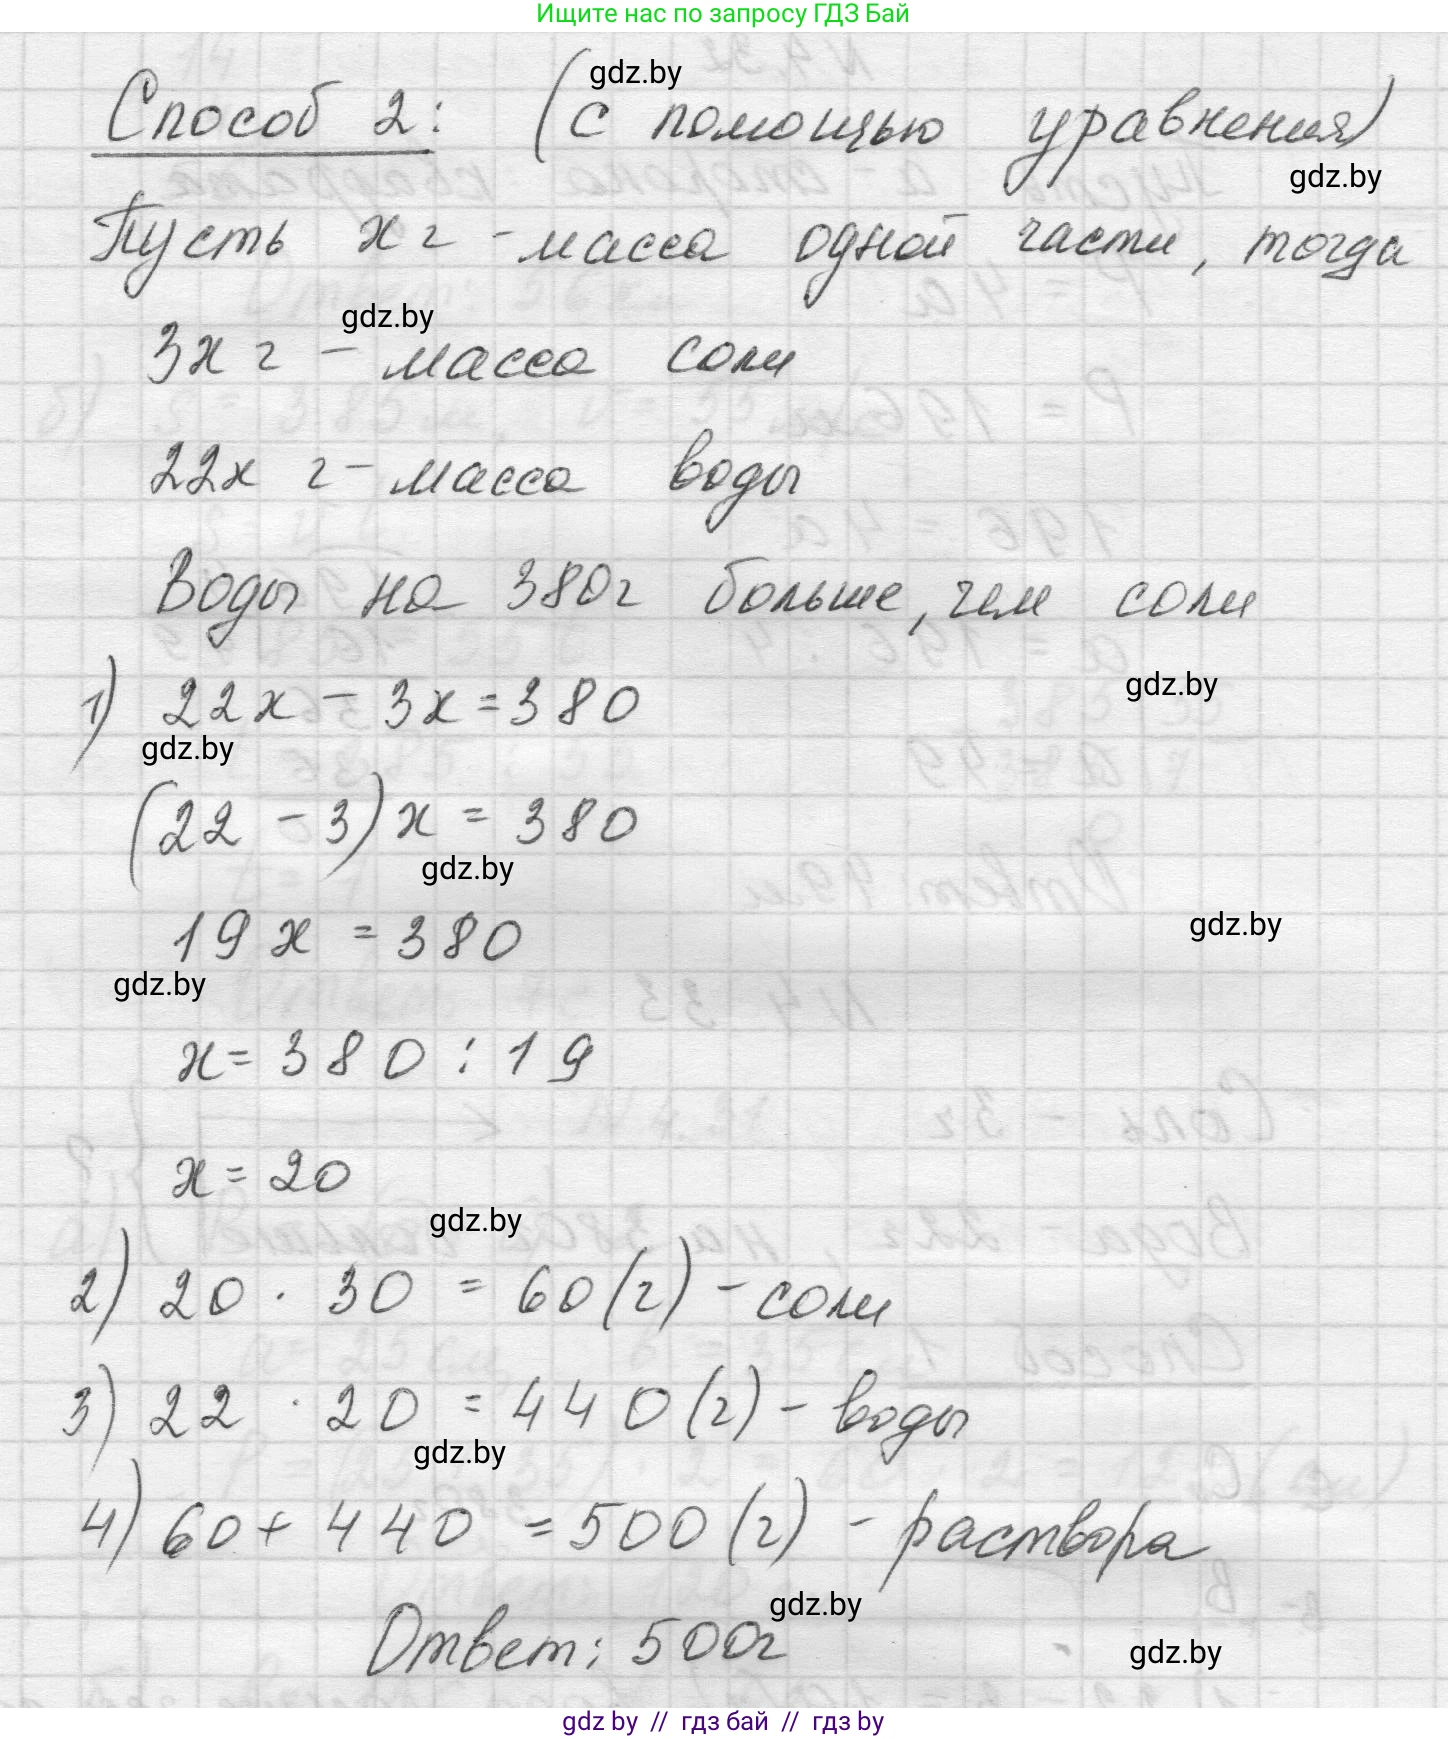 Ищите нас по запросу ГДЗ Бай
gdz.by
Способ 2: (с помощью уравнения)
gdz.by
Пусть х г - масса одной части, тогда
gdz.by
3х г - масса соли
22х г - масса воды
Воды на 380г больше, чем соли
gdz.by
1) 22х - 3х = 380
gdz.by
(22 - 3)х = 380
gdz.by
19х = 380
gdz.by
gdz.by
х = 380 : 19
х = 20
gdz.by
2) 20 · 30 = 60(г) - соли
3) 22 · 20 = 440(г) - воды
gdz.by
4) 60 + 440 = 500(г) - раствора
gdz.by
Ответ: 500г
gdz.by
gdz by // гдз бай // гдз by